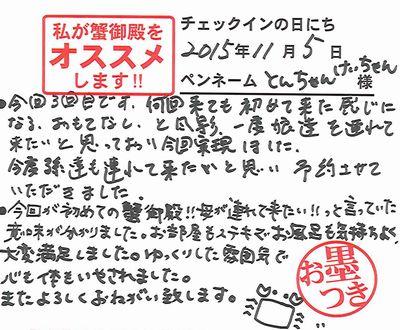 私が蟹御殿を
オススメ
します!!
チェックインの日にち
2015年11月5日
ペンネーム とんちゃん けいちゃん 様
●今回3回目です。何回来ても初めて来た感じに
なる、おもてなし、と風景、一度娘達を連れて
来たいと思っており今回実現しました。
今度孫達も連れて来たいと思い 予約させて
いただきました。
●今回が初めての蟹御殿!!母が連れて来たい!!って言っていた
意味が分かりました。お部屋もステキでお風呂も気持ちよく
大変満足しました。ゆっくりした雰囲気で
心も体もいやされました。
またよろしくおねがい致します。
お墨
つき